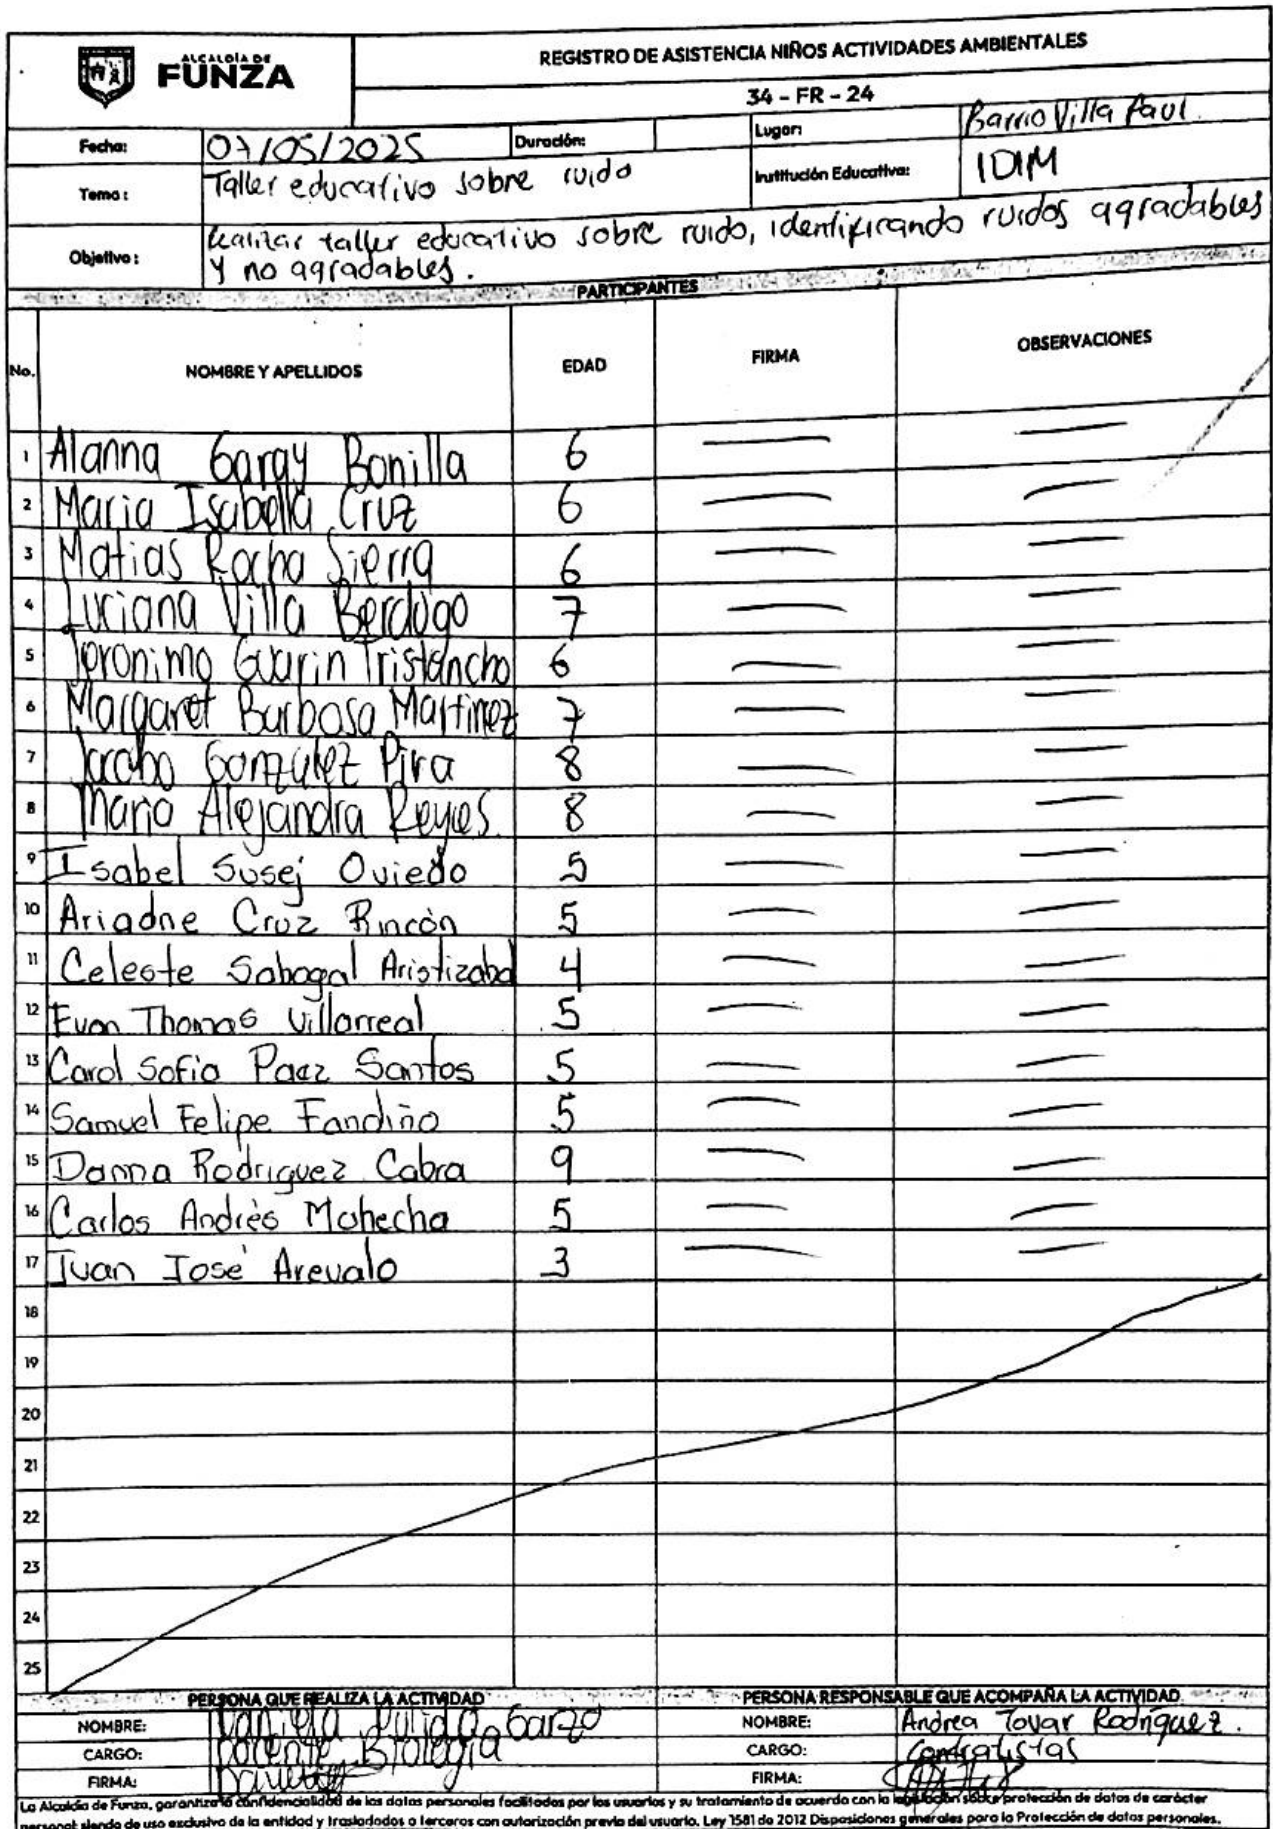 ALCALDÍA DE
FUNZA
REGISTRO DE ASISTENCIA NIÑOS ACTIVIDADES AMBIENTALES
34 - FR - 24
Fecha: 07/05/2025 Duración: Lugar: Barrio Villa Paul
Tema: Taller educativo sobre ruido Institución Educativa: IDIM
Objetivo: Realizar taller educativo sobre ruido, identificando ruidos agradables
y no agradables.
PARTICIPANTES
No. NOMBRE Y APELLIDOS EDAD FIRMA OBSERVACIONES
1 Alanna Garay Bonilla 6 — —
2 Maria Isabella Cruz 6 — —
3 Matias Rocha Sierra 6 — —
4 Luciana Villa Berdugo 7 — —
5 Jeronimo Guarin Tristancho 6 — —
6 Margaret Barbosa Martinez 7 — —
7 Jacobo Gonzalez Pira 8 — —
8 Maria Alejandra Reyes 8 — —
9 Isabel Susej Oviedo 5 — —
10 Ariadne Cruz Rincón 5 — —
11 Celeste Sabogal Aristizabal 4 — —
12 Evan Thomas Villarreal 5 — —
13 Carol Sofia Paez Santos 5 — —
14 Samuel Felipe Fandiño 5 — —
15 Danna Rodriguez Cabra 9 — —
16 Carlos Andrés Mahecha 5 — —
17 Juan José Arevalo 3 — —
18
19
20
21
22
23
24
25
PERSONA QUE REALIZA LA ACTIVIDAD PERSONA RESPONSABLE QUE ACOMPAÑA LA ACTIVIDAD
NOMBRE: Garzo NOMBRE: Andrea Tovar Rodriguez.
CARGO: Docente Biología CARGO: Contratistas
FIRMA: FIRMA:
La Alcaldía de Funza, garantiza la confidencialidad de los datos personales facilitados por los usuarios y su tratamiento de acuerdo con la legislación sobre protección de datos de carácter
personal siendo de uso exclusivo de la entidad y trasladados a terceros con autorización previa del usuario. Ley 1581 de 2012 Disposiciones generales para la Protección de datos personales.